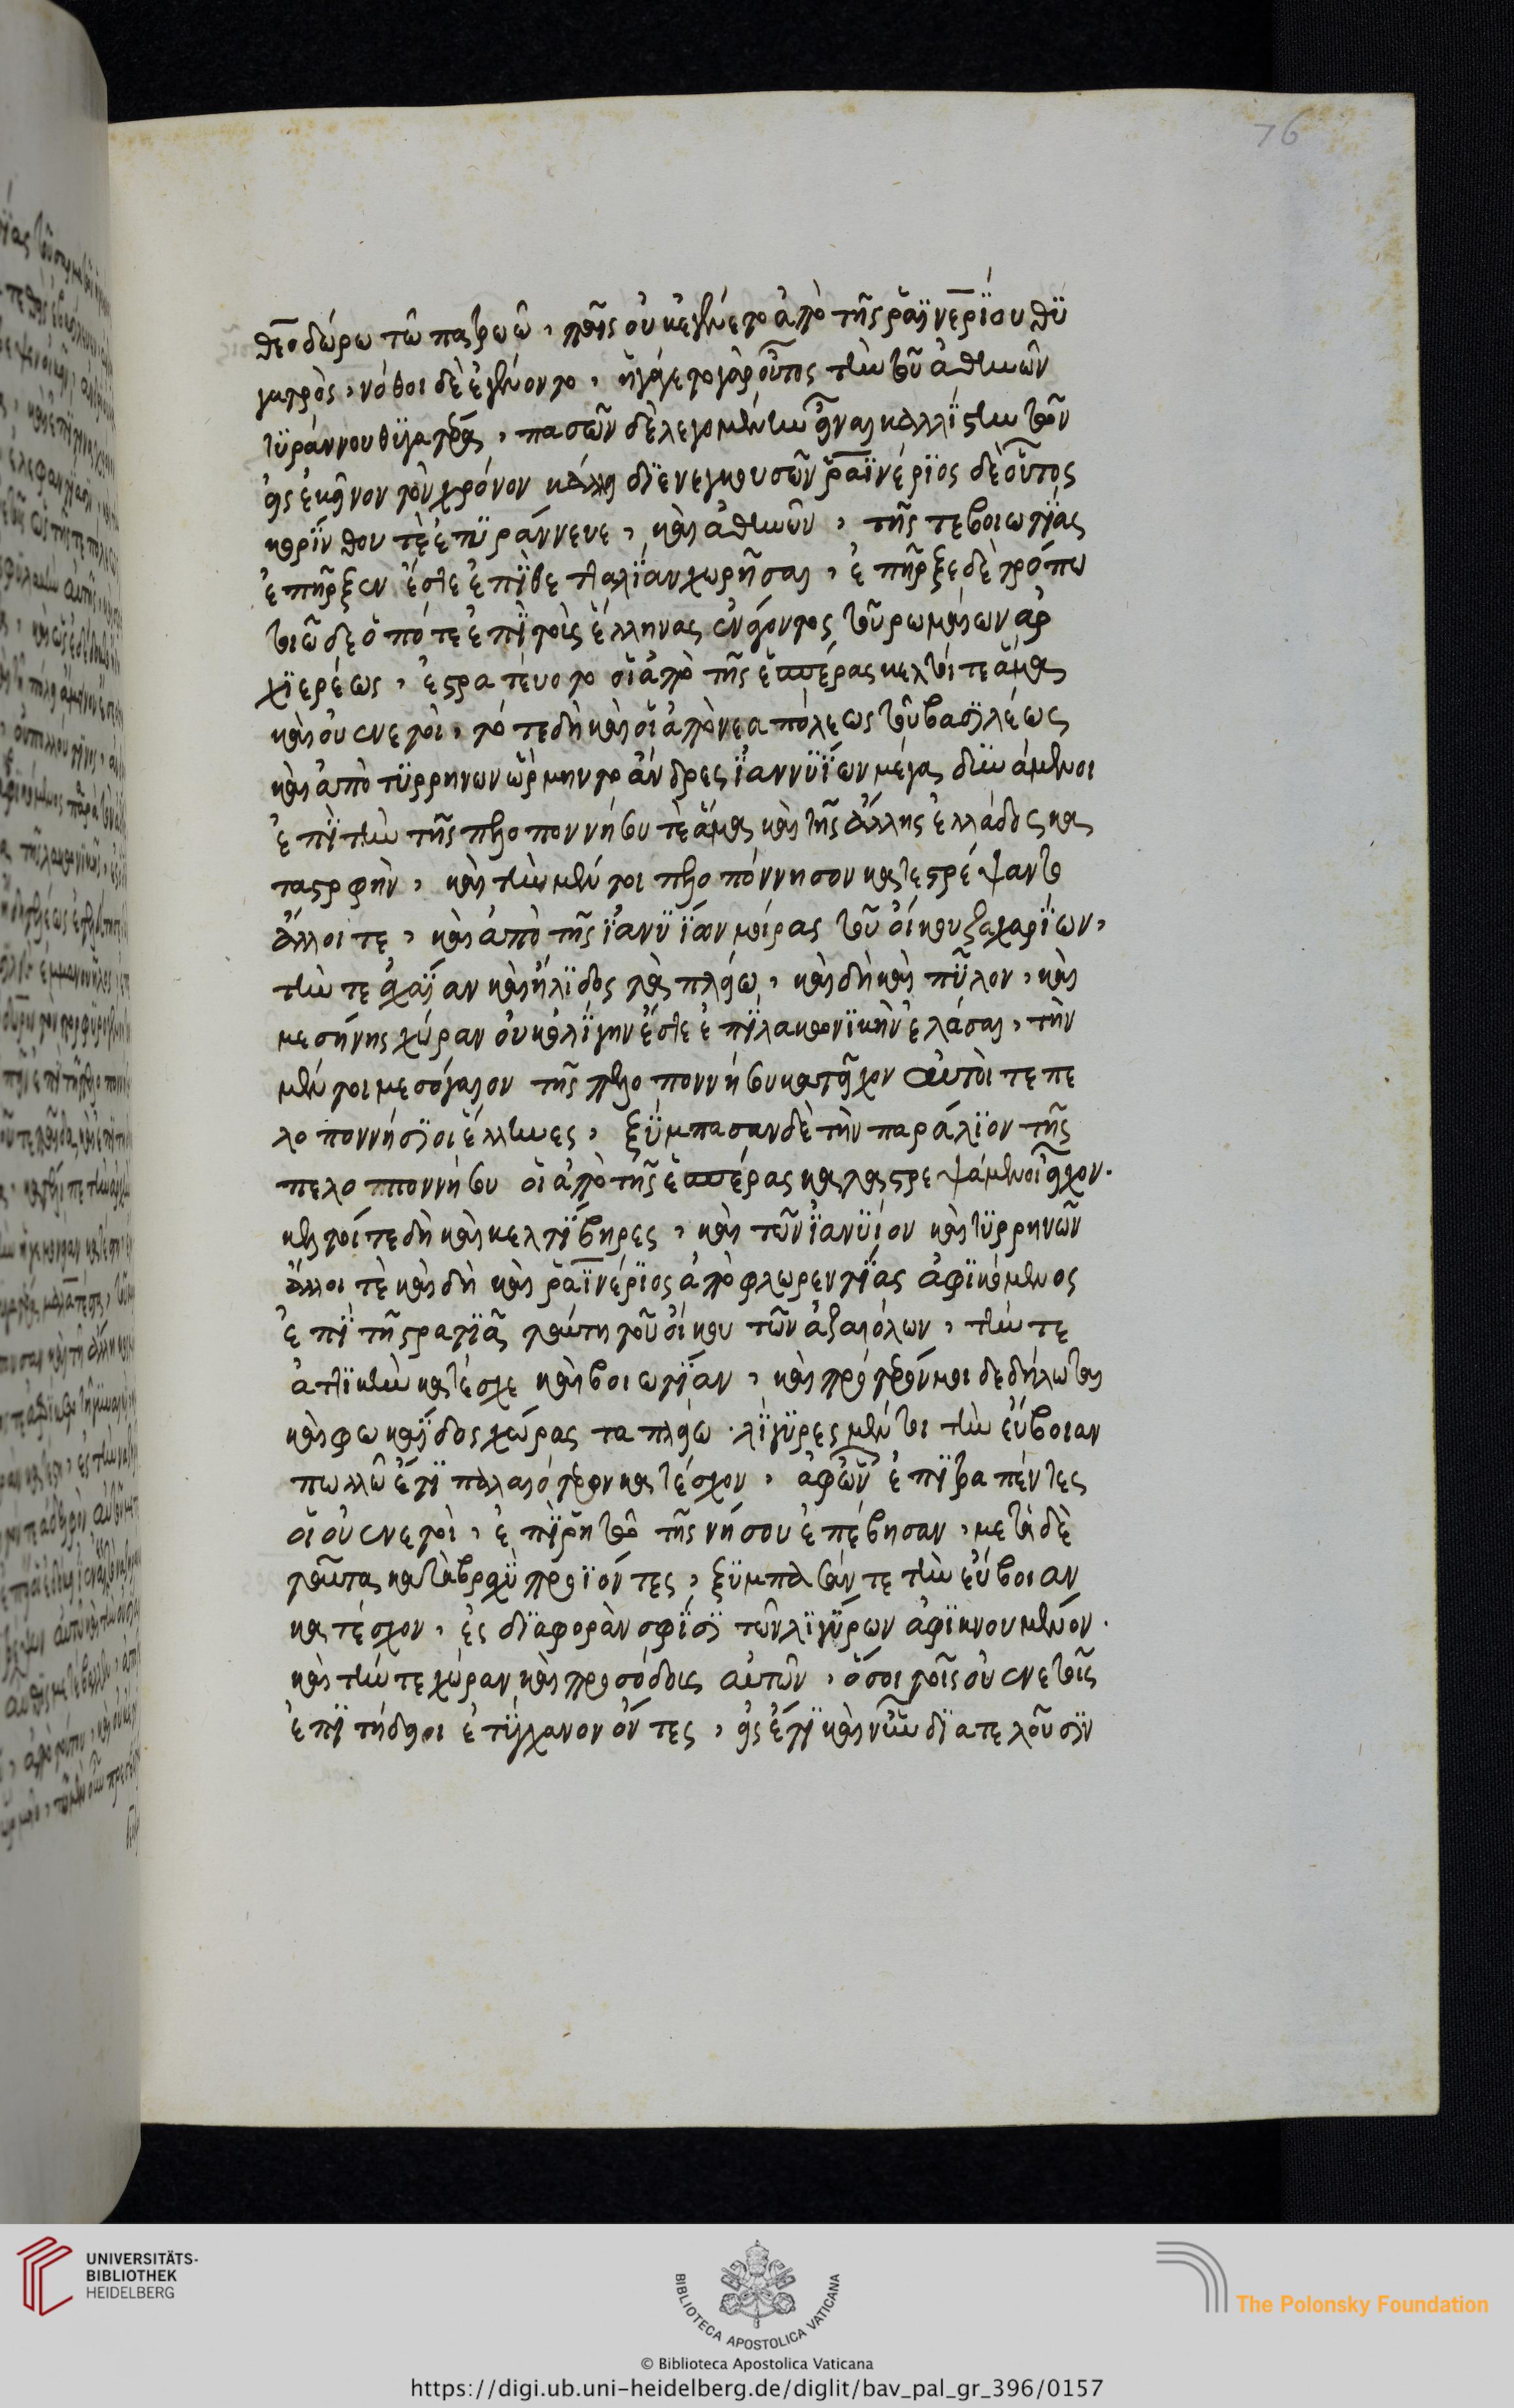 76
θεοδώρω τῶ παζρωῶ, παῖς οὐκ ἐγένετο ἀπὸ τῆς ῥαϊνερίου θϋ
γατρὸς, νόθοι δὲ ἐγένοντο, ἠγάγετο γὰρ οὗτος τὴν τοῦ ἀθηνῶν
τϋράννου θϋγατέρα, πασῶν δὲ λεγομένην εἶναι καλλίστην τῶν
ἐς ἐκεῖνον τὸν χρόνον κάλλει διενεγκουσῶν ῥαϊνέριος δὲ οὗτος
κορίνθου τὲ ἐτϋράννευε, καὶ ἀθηνῶν, τῆς τε βοιωτίας
ἐπῆρξεν ἔστε ἐπὶ θετταλίαν χωρῆσαι, ἐπῆρξε δὲ τρόπω
τοιῶδε ὁπότε ἐπὶ τοὺς ἕλληνας ἐνάγοντος τοῦ ρωμαίων ἀρ
χιερέως, ἐστρατεύοντο οἱ ἀπὸ τῆς ἑσπέρας κελτοί τε ἅμα
καὶ οὐενετοὶ, τότε δὴ καὶ οἱ ἀπὸ νεαπόλεως τοῦ βασιλέως
καὶ ἀπὸ τϋρρηνων ὥρμηντο ἄνδρες ἰαννϋΐων μέγα δυνάμενοι
ἐπὶ τὴν τῆς πελοποννήσου τὲ ἅμα καὶ τῆς ἄλλης ἑλλάδος κα
ταστροφὴν, καὶ τὴν μέντοι πελοπόννησον κατεστρέψαντο
ἄλλοι τε, καὶ ἀπὸ τῆς ἰανϋΐων μοίρας τοῦ οἴκου ζαχαρίων,
τήν τε ἀχαΐαν καὶ ἤλιδος τὰ πλείω, καὶ δὴ καὶ πῦλον, καὶ
μεσήνης χώραν οὐκ ὀλίγην ἔστε ἐπὶ λακονικὴν ἐλάσαι, τὴν
μέντοι μεσόγαιον τῆς πελοποννήσου κατεῖχον αὐτοὶ τε πε
λοποννήσιοι ἕλληνες, ξύμπασαν δὲ τὴν παράλιον τῆς
πελοποννήσου οἱ ἀπὸ τῆς ἑσπέρας καταστρεψάμενοι εἶχον.
κελτοί τε δὴ καὶ κελτίβηρες, καὶ τῶν ἰανϋίον καὶ τϋρρηνῶν
ἄλλοι τὲ καὶ δὴ καὶ ῥαϊνέριος ἀπὸ φλωρεντίας ἀφικόμενος
ἐπὶ τῆ στρατιᾷ ταύτη τοῦ οἴκου τῶν ἀζαιόλων, τήν τε
ἀττικὴν κατέσχε καὶ βοιωτίαν, καὶ πρότερόν μοι δεδήλωται
καὶ φωκαΐδος χώρας τα πλείω. λίγϋρες μέν τοι τὴν εὔβοιαν
πολλῶ ἔτι παλαιότερον κατέσχον, ἀφ' ὧν ἐπιτραπέντες
οἱ οὐενετοὶ, ἐπὶ ῥητῶ τῆς νήσου ἐπέβησαν, μετὰ δὲ
ταῦτα κατὰ βραχὺ προϊόντες, ξϋμπᾶσάν τε τὴν εὔβοιαν
κατέσχον, ἐς διαφορὰν σφίσι τῶν λιγύρων ἀφικνουμένον.
καὶ τήν τε χώραν καὶ προσόδους αὐτῶν, ὅσοι τοῖς οὐενετοῖς
ἐπιτήδειοι ἐτύγχανον ὄντες, ἐς ἔτι καὶ νῦν διατελοῦσιν
UNIVERSITÄTS-
BIBLIOTHEK
HEIDELBERG
BIBLIOTECA APOSTOLICA VATICANA
The Polonsky Foundation
© Biblioteca Apostolica Vaticana
https://digi.ub.uni-heidelberg.de/diglit/bav_pal_gr_396/0157